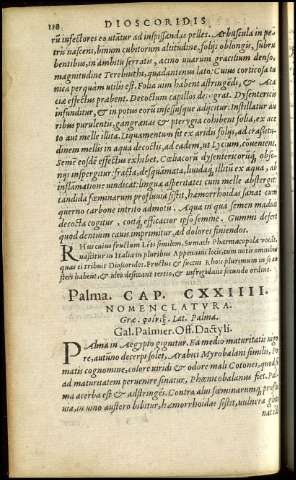 118 DIOSCORIDIS
rū infectores eo utātur ad inspissandas pelles. Arbuscula in pe
tris nascens, binum cubitorum altitudine, folijs oblongis, subru
bentibus, in ambitu serratis, acino uvarum gracilium denso,
magnitudine Terebinthi, quadantenus lato: Cuius corticosa tu
nica perquàm utilis est. Folia uim habent astringēdi, & Aca
ciæ effectus præbent. Decoctum capillos denigrat. Dysentericis
infunditur, & in potus eorū insessusque adijcitur. Instillatur au
ribus purulentis, gangrænas & pterygia cohibent folia, ex ace
to aut melle illita. Liquamentum fit ex aridis folijs, ad crassitu
dinem mellis in aqua decoctis, ad eadem, ut Lycium, conueniens.
Semē eosdē effectus exhibet. Cœliacorū dysentericorūque obso
nijs inspergitur: fracta, desquamata, liuida, illitū ex aqua, ab
inflammatione uindicat: linguæ asperitates cum melle abstergit:
candida fœminarum profluuia sistit, hæmorrhoidas sanat cum
querno carbone intrito admotū. Aqua in qua semen madidū
decocta cogitur, coitq́ue, efficacior ipso semine. Gummi dehet
quod dentium cauis imprimitur, ad dolores finiendos.
RHus cuius fructum Lito similem, Sumach Pharmacopolæ vocāt,
quas ei tribuit Dioscorides. Fructus & succus
Palma. CAP. CXXIIII.
NOMENCLATVRA.
Græ. Lat. Palma.
Gal. Palmier. Off. Dactyli.
PAlma in Aegypto gignitur. Ea medio maturitatis
re, autūno decerpi solet, Arabici Myrobalani similis, Po
matis cognomine, colore uiridi & odore mali Cotonei, quod si
ad maturitatem peruenire sinatur, Phœnicobalanus fiet. Pal
ma acerba est & adstringēs. Contra alui fœminarumque proflu
uia, in uino austero bibitur, hæmorrhoidas sistit, uulnera glu